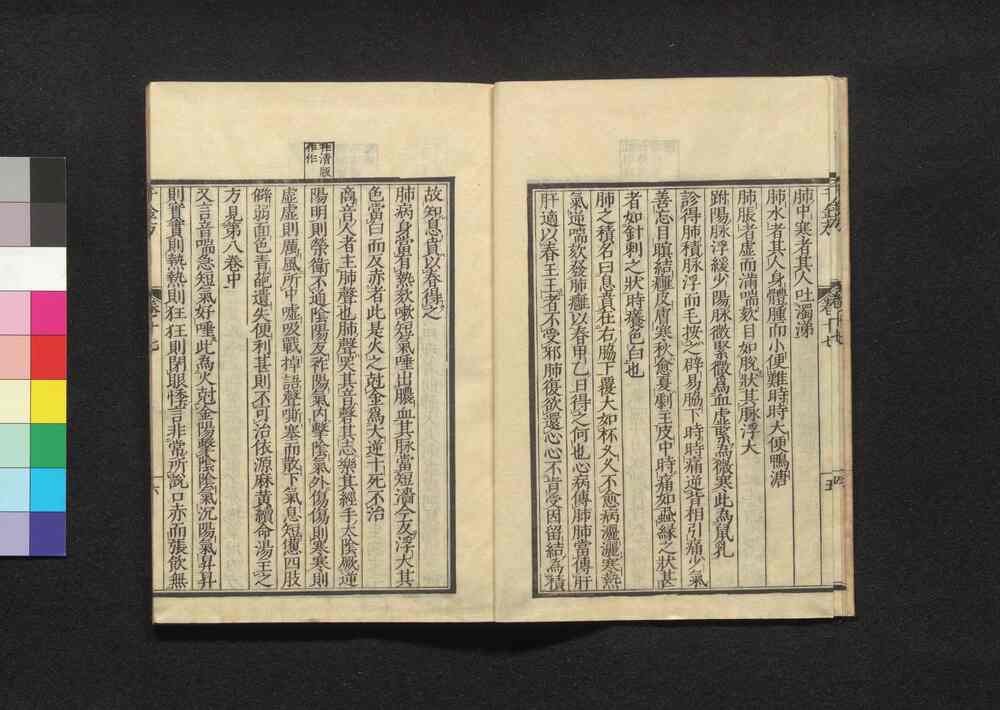 肺中寒者其人吐濁涕
肺水者其人身體腫而小便難時時大便鴨溏
肺脹者虛而滿喘欬目如脫狀其脈浮大
趺陽脈浮緩少陽脈微緊微為血虛緊為微寒此為鼠乳
診得肺積脈浮而毛按之辟易脇下時時痛逆背相引痛少氣
善忘目瞑結癰皮膚寒秋愈夏劇主皮中時痛如蝨緣之狀甚
者如針刺之狀時癢色白也
肺之積名曰息賁在右脇下覆大如杯久久不愈病灑灑寒熱
氣逆喘欬發肺癰以春甲乙日得之何也心病傳肺肺當傳肝
肝適以春王王者不受邪肺復欲還心心不肯受因留結為積
故知息賁以春得之
肺病身當有熱欬嗽短氣唾出膿血其脈當短濇今反浮大其
色當白而反赤者此是火之剋金為大逆十死不治
商音人者主肺聲也肺聲哭其音磬其志樂其經手太陰厥逆
陽明則榮衛不通陰陽反祚陽氣內擊陰氣外傷傷則寒寒則
虛虛則厲風所中噓吸戰掉語聲嘶塞而散下氣息短憊四肢
僻弱面色青葩遺失便利甚則不可治依源麻黃續命湯主之
方見第八卷中
又言音喘急短氣好唾此為火剋金陽擊陰陰氣沉陽氣昇昇
則實實則熱熱則狂狂則閉眼悸言非常所說口赤而張飲無